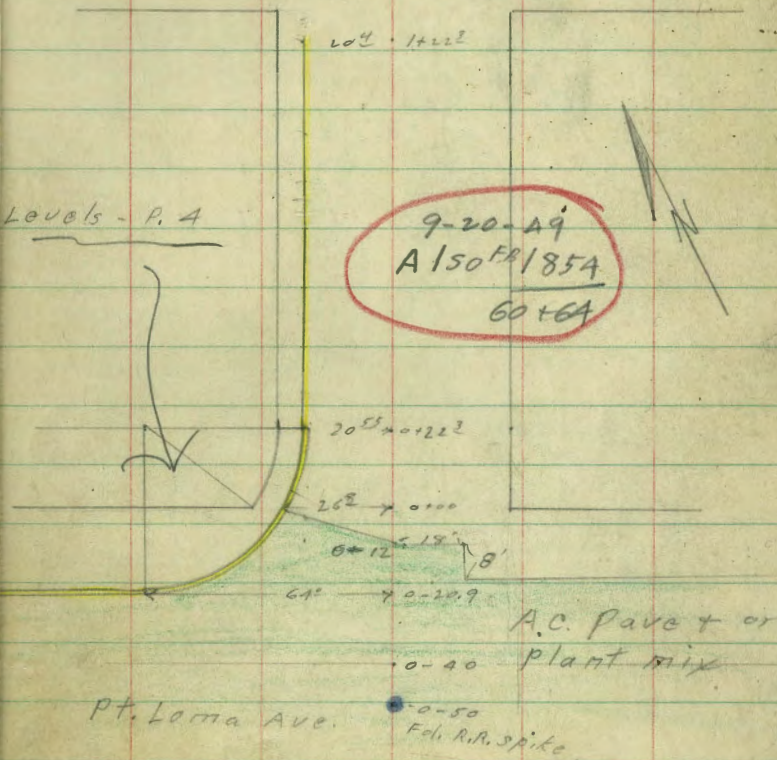 20⁴ · 1+22²
Levels - P. 4
9-20-49
A150 FR/854
60+64
20⁵⁵ → 0+22²
26² → 0+00
0-12 18'
8'
64⁰ → 0-20.9
A.C. Pave + or
plant mix
0-40
Pt. Loma Ave.
0-50
Fd. R.R. spike
N